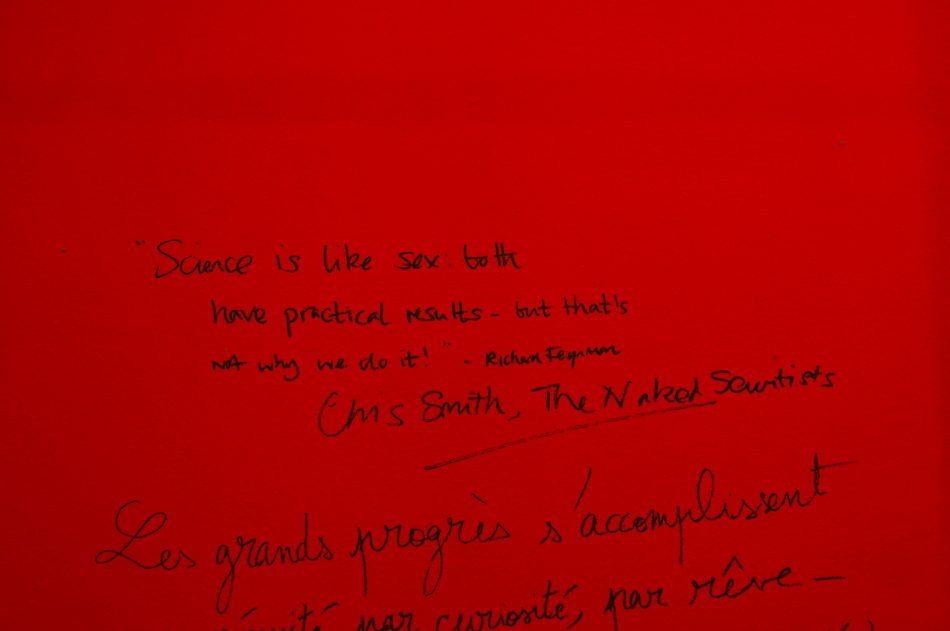 "Science is like sex: both
have practical results - but that's
not why we do it!" - Richard Feynman
Chris Smith, The Naked Scientists
Les grands progrès s'accomplissent
par curiosité, par rêve -